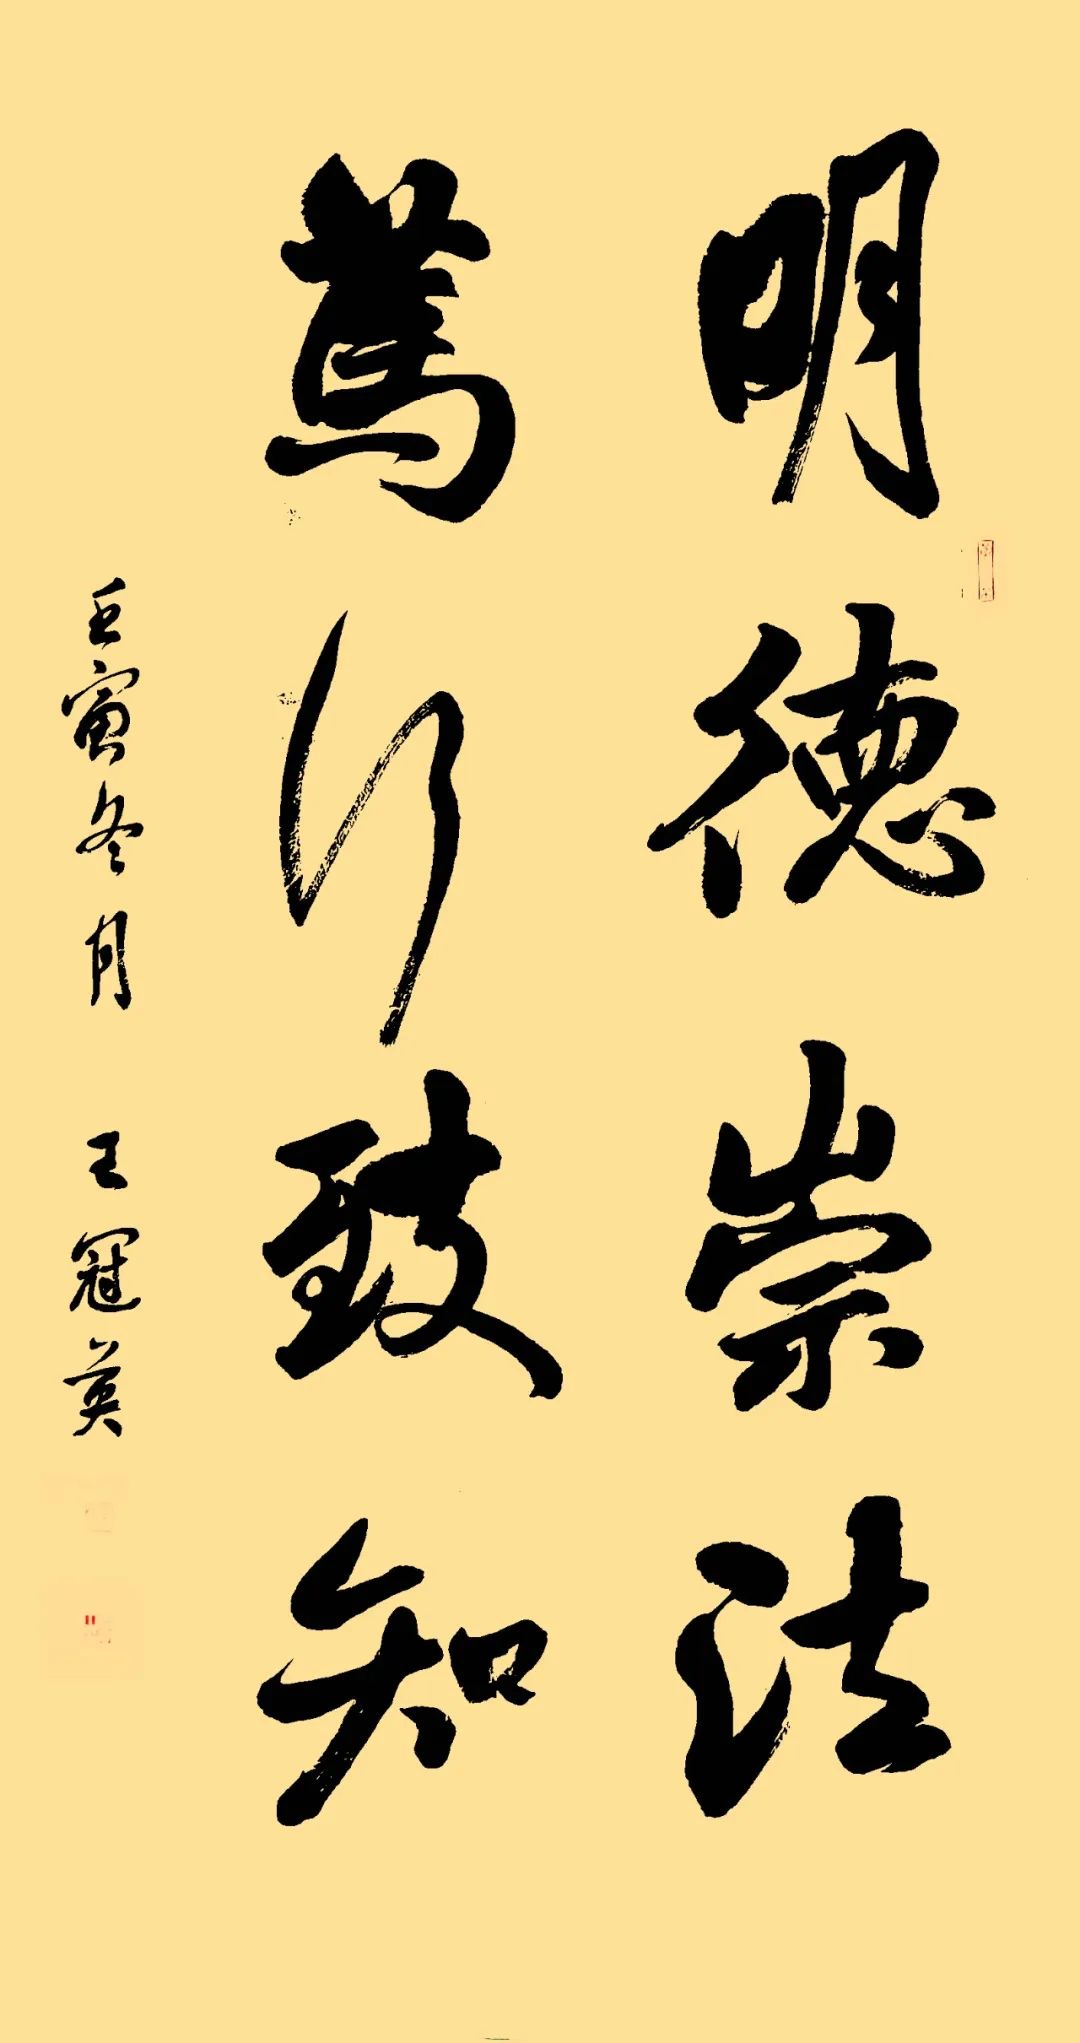 明德崇法
篤行致知
壬寅冬月 王冠英